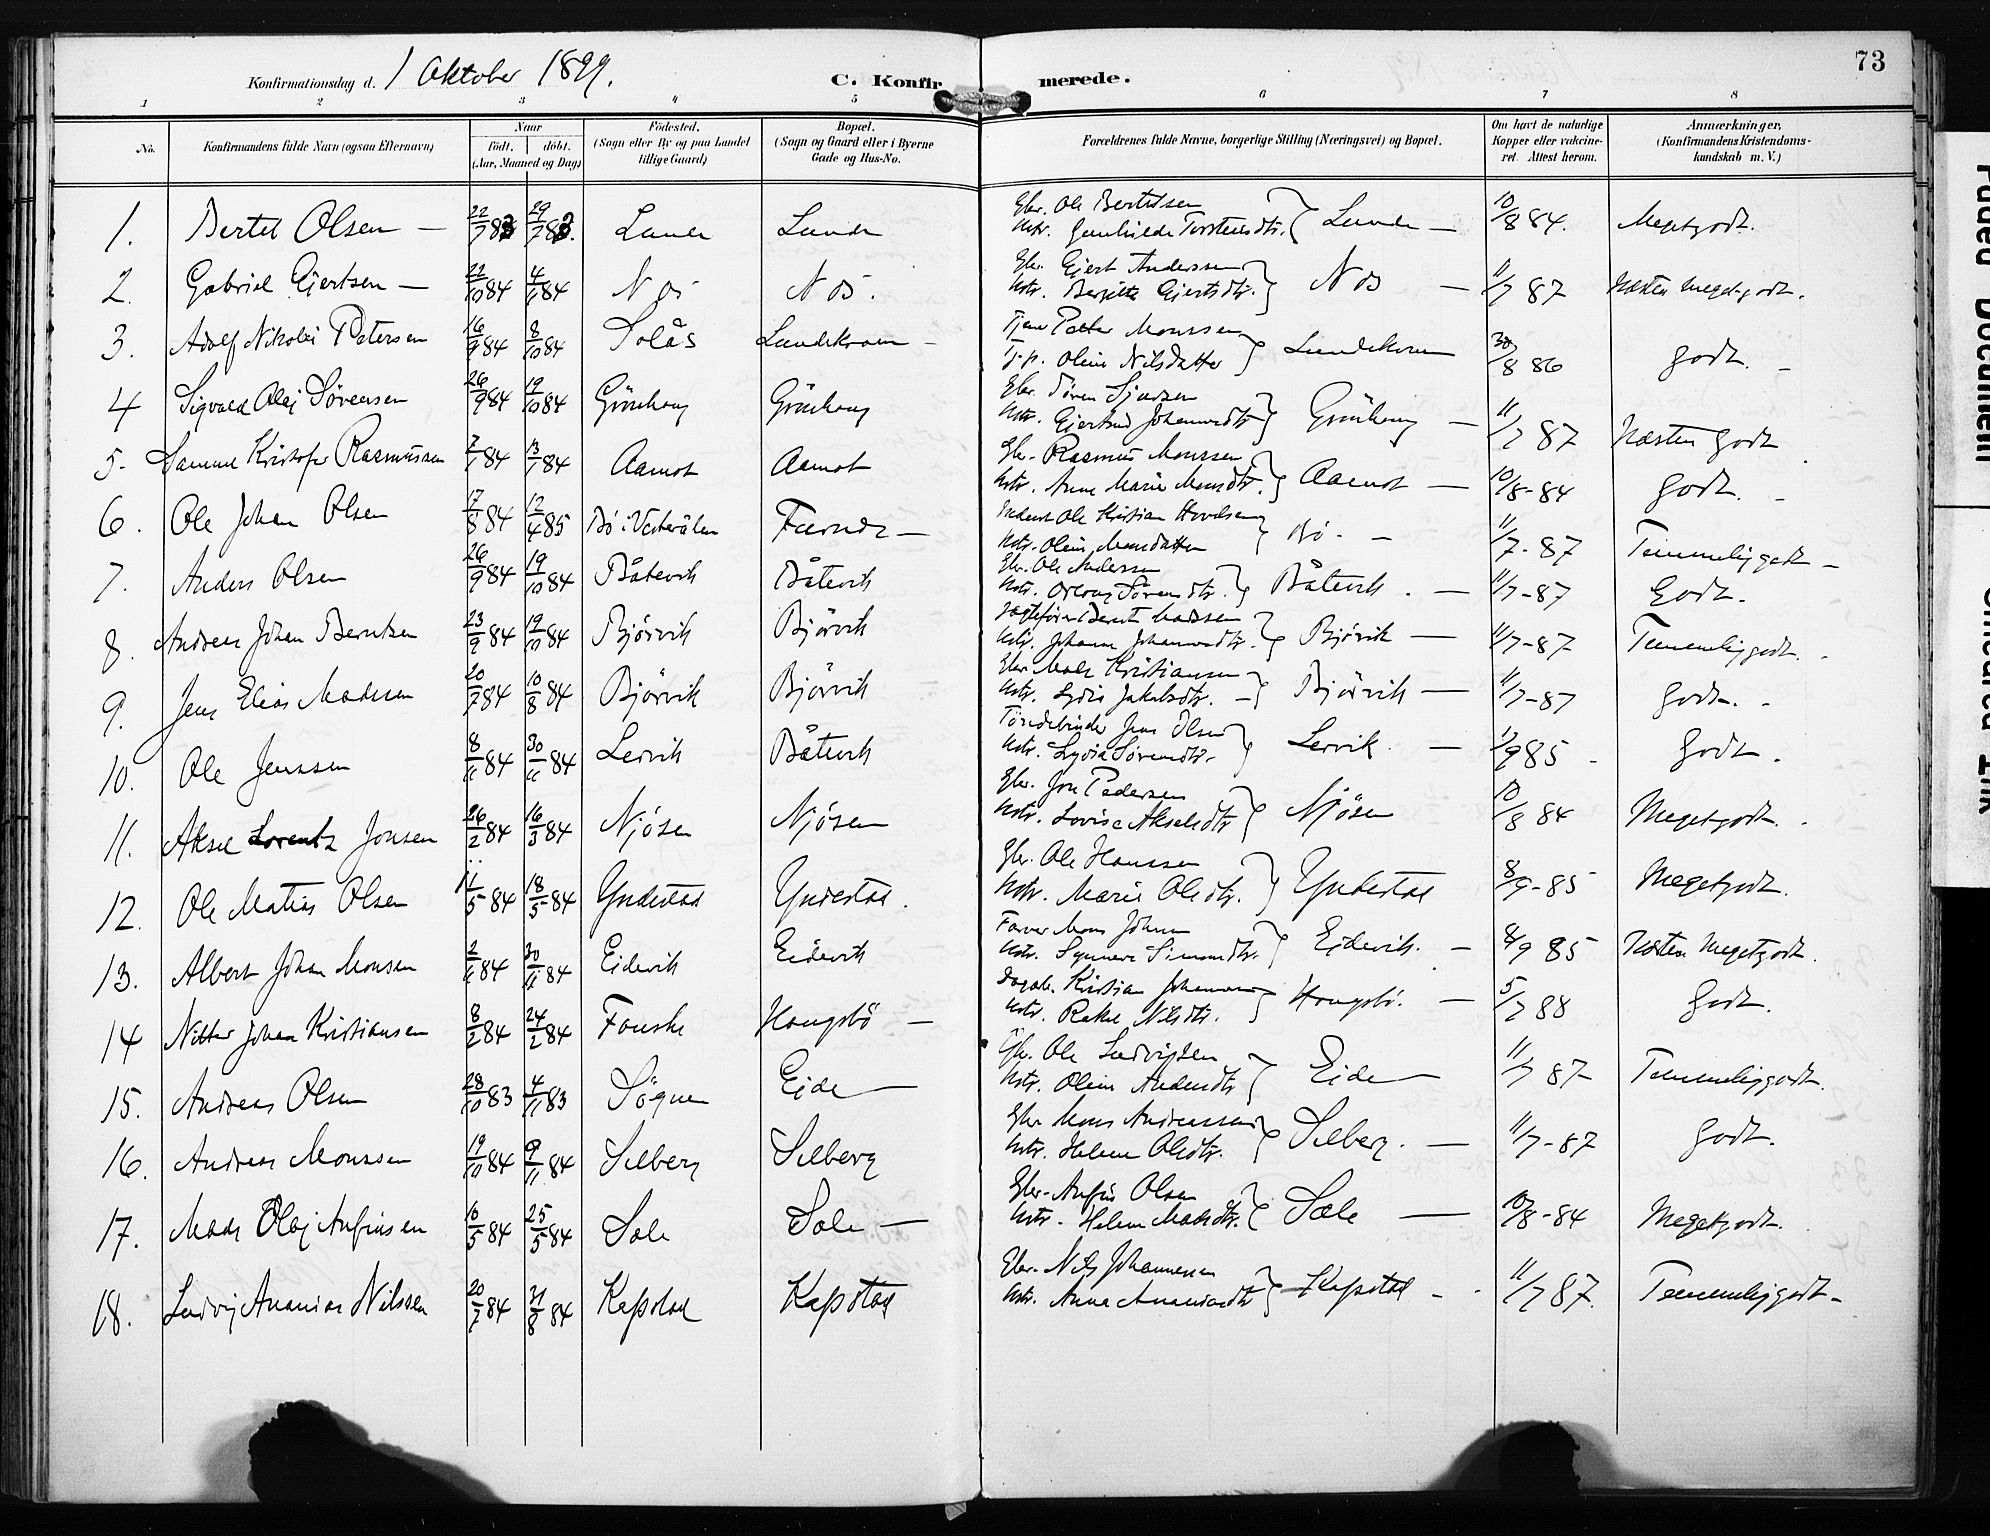 73
Konfirmationsdag d. 1 Oktober 1899. C. Konfirmerede.
1 2 3 4 5 6 7 8
No. Konfirmandens fulde Navn (ogsaa Efternavn) Naar født. døbt. (Aar, Maaned og Dag) Fødested. (Sogn eller By og paa Landet tillige Gaard) Bopæl. (Sogn og Gaard eller i Byerne Gade og Hus-No. Forældrenes fulde Navne, borgerlige Stilling (Næringsvei) og Bopæl. Om havt de naturlige Kopper eller vakcineret. Attest herom. Anmærkninger. (Konfirmandens Kristendomskundskab m. V.)
1. Bertel Olsen – 22/7 83 29/7 83. Lunde Lunde Gbr. Ole Bertelsen Hstr. Gunhilde Torstensdtr. Lunde – 10/8 84. Megetgodt.
2. Gabriel Gjertsen – 22/10 84 4/1 84 Nos Nos. Gbr. Gjert Anderssen Hstr. Bergitte Gjertsdtr. Nos – 11/7 87 Næsten megetgodt.
3. Adolf Nikolai Petersen 16/9 84 8/10 84 Solås Lundekvam – Tjener Petter Monssen Tj.p. Oline Nilsdatter Lundekvam 30/8 86 Godt. –
4 Sigvald Olaj Sørensen 26/9 84 19/10 84 Grönhaug Grönhaug Gbr. Sören Hstr. Gjertrud Johannesdtr Grönhaug – 11/7 87 Næsten Godt.
5. Samuel Kristofer Rasmussen 7/1 84 13/1 84 Aamot Aamot Gbr. Rasmus Monssen Hstr. Anne Marie Monsdtr. Aamot – 10/8-84 Godt. –
6. Ole Johan Olsen 17/8 84 12/4 85 Bö i Vesterålen Furnes – Inderst Ole Kristian Hstr. Oline Monsdatter Bö. – 11/7-87 Temmeliggodt –
7. Anders Olsen 26/9 84 19/10 84 Båtevik Båtevik Gbr. Ole Andersen Hstr. Sörensdtr. Båtevik. – 11/7-87 Godt.
8. Andreas Johan Berntsen 23/9 84 19/10 84 Bjørvik Bjørvik Jægtefører Bernt Madssen Hstr. Johanne Johannesdtr. Bjørvik – 11/7-87 Temmeliggodt.
9. Jens Elias Madssen 20/7 84 10/8 84 Bjørvik Bjørvik Gbr. Mads Kristiansen Hstr. Lydia Jakobsdtr. – Bjørvik – 11/7-87 Godt. –
10. Ole Jenssen 8/11 84 30/11 84 Lervik Båtevik Töndebinder Jens Olsen Hstr. Lydia Sørensdtr. Lervik. – 1/9 85 Godt.
11. Aksel Lorentz Jonsen 26/2 84 16/3 84 Njösen Njösen Gbr. Jon Pedersen Hstr. Lovise Akselsdtr Njösen 10/8 84 Megetgodt.
12. Ole Matias Olsen 11/5 84 18/5 84 Yndestad Yndestad. Gbr. Ole Hanssen Hstr. Marie Olsdtr. Yndestad 8/9-85 Megetgodt.
13. Albert Johan Monsen 2/11 84 30/11 84 Eidevik Eidevik Farver Mons Johnsen Hstr. Synneve Simonsdtr. Eidevik. – 8/9 85 Næsten Megetgodt.
14 Nitter Johan Kristiansen 8/2 84 24/2 84 Fauske Haugsbö – Dagarb. Kristian Johannesen Hstr. Rakel Nilsdtr. Haugsbö. – 5/7 88 Godt.
15. Andreas Olsen 28/10 83 4/11 83 Søgnen Eide – Gbr. Ole Ludvigsen Hstr. Oline Andersdtr Eide – 11/7 87 Temmeliggodt.
16. Andreas Monssen 19/10 84 9/11 84 Selberg Selberg Gbr Mons Andreassen Hstr. Helene Olsdtr. Selberg. – 11/7-87 Godt.
17. Mads Olaj Anfinsen 16/5 84 25/5 84 Sæle Sæle – Gbr. Anfin Olsen Hstr. Helene Madsdtr. Sæle – 10/8-84 Megetgodt.
18. Ludvig Ananias Nilssen 20/7 84 31/8 84 Kapstad Kapstad Gbr. Nils Johannessen Hstr. Anna Ananiasdtr Kapstad – 11/7 87. Temmeliggodt –
Faded Document
Smeared Ink